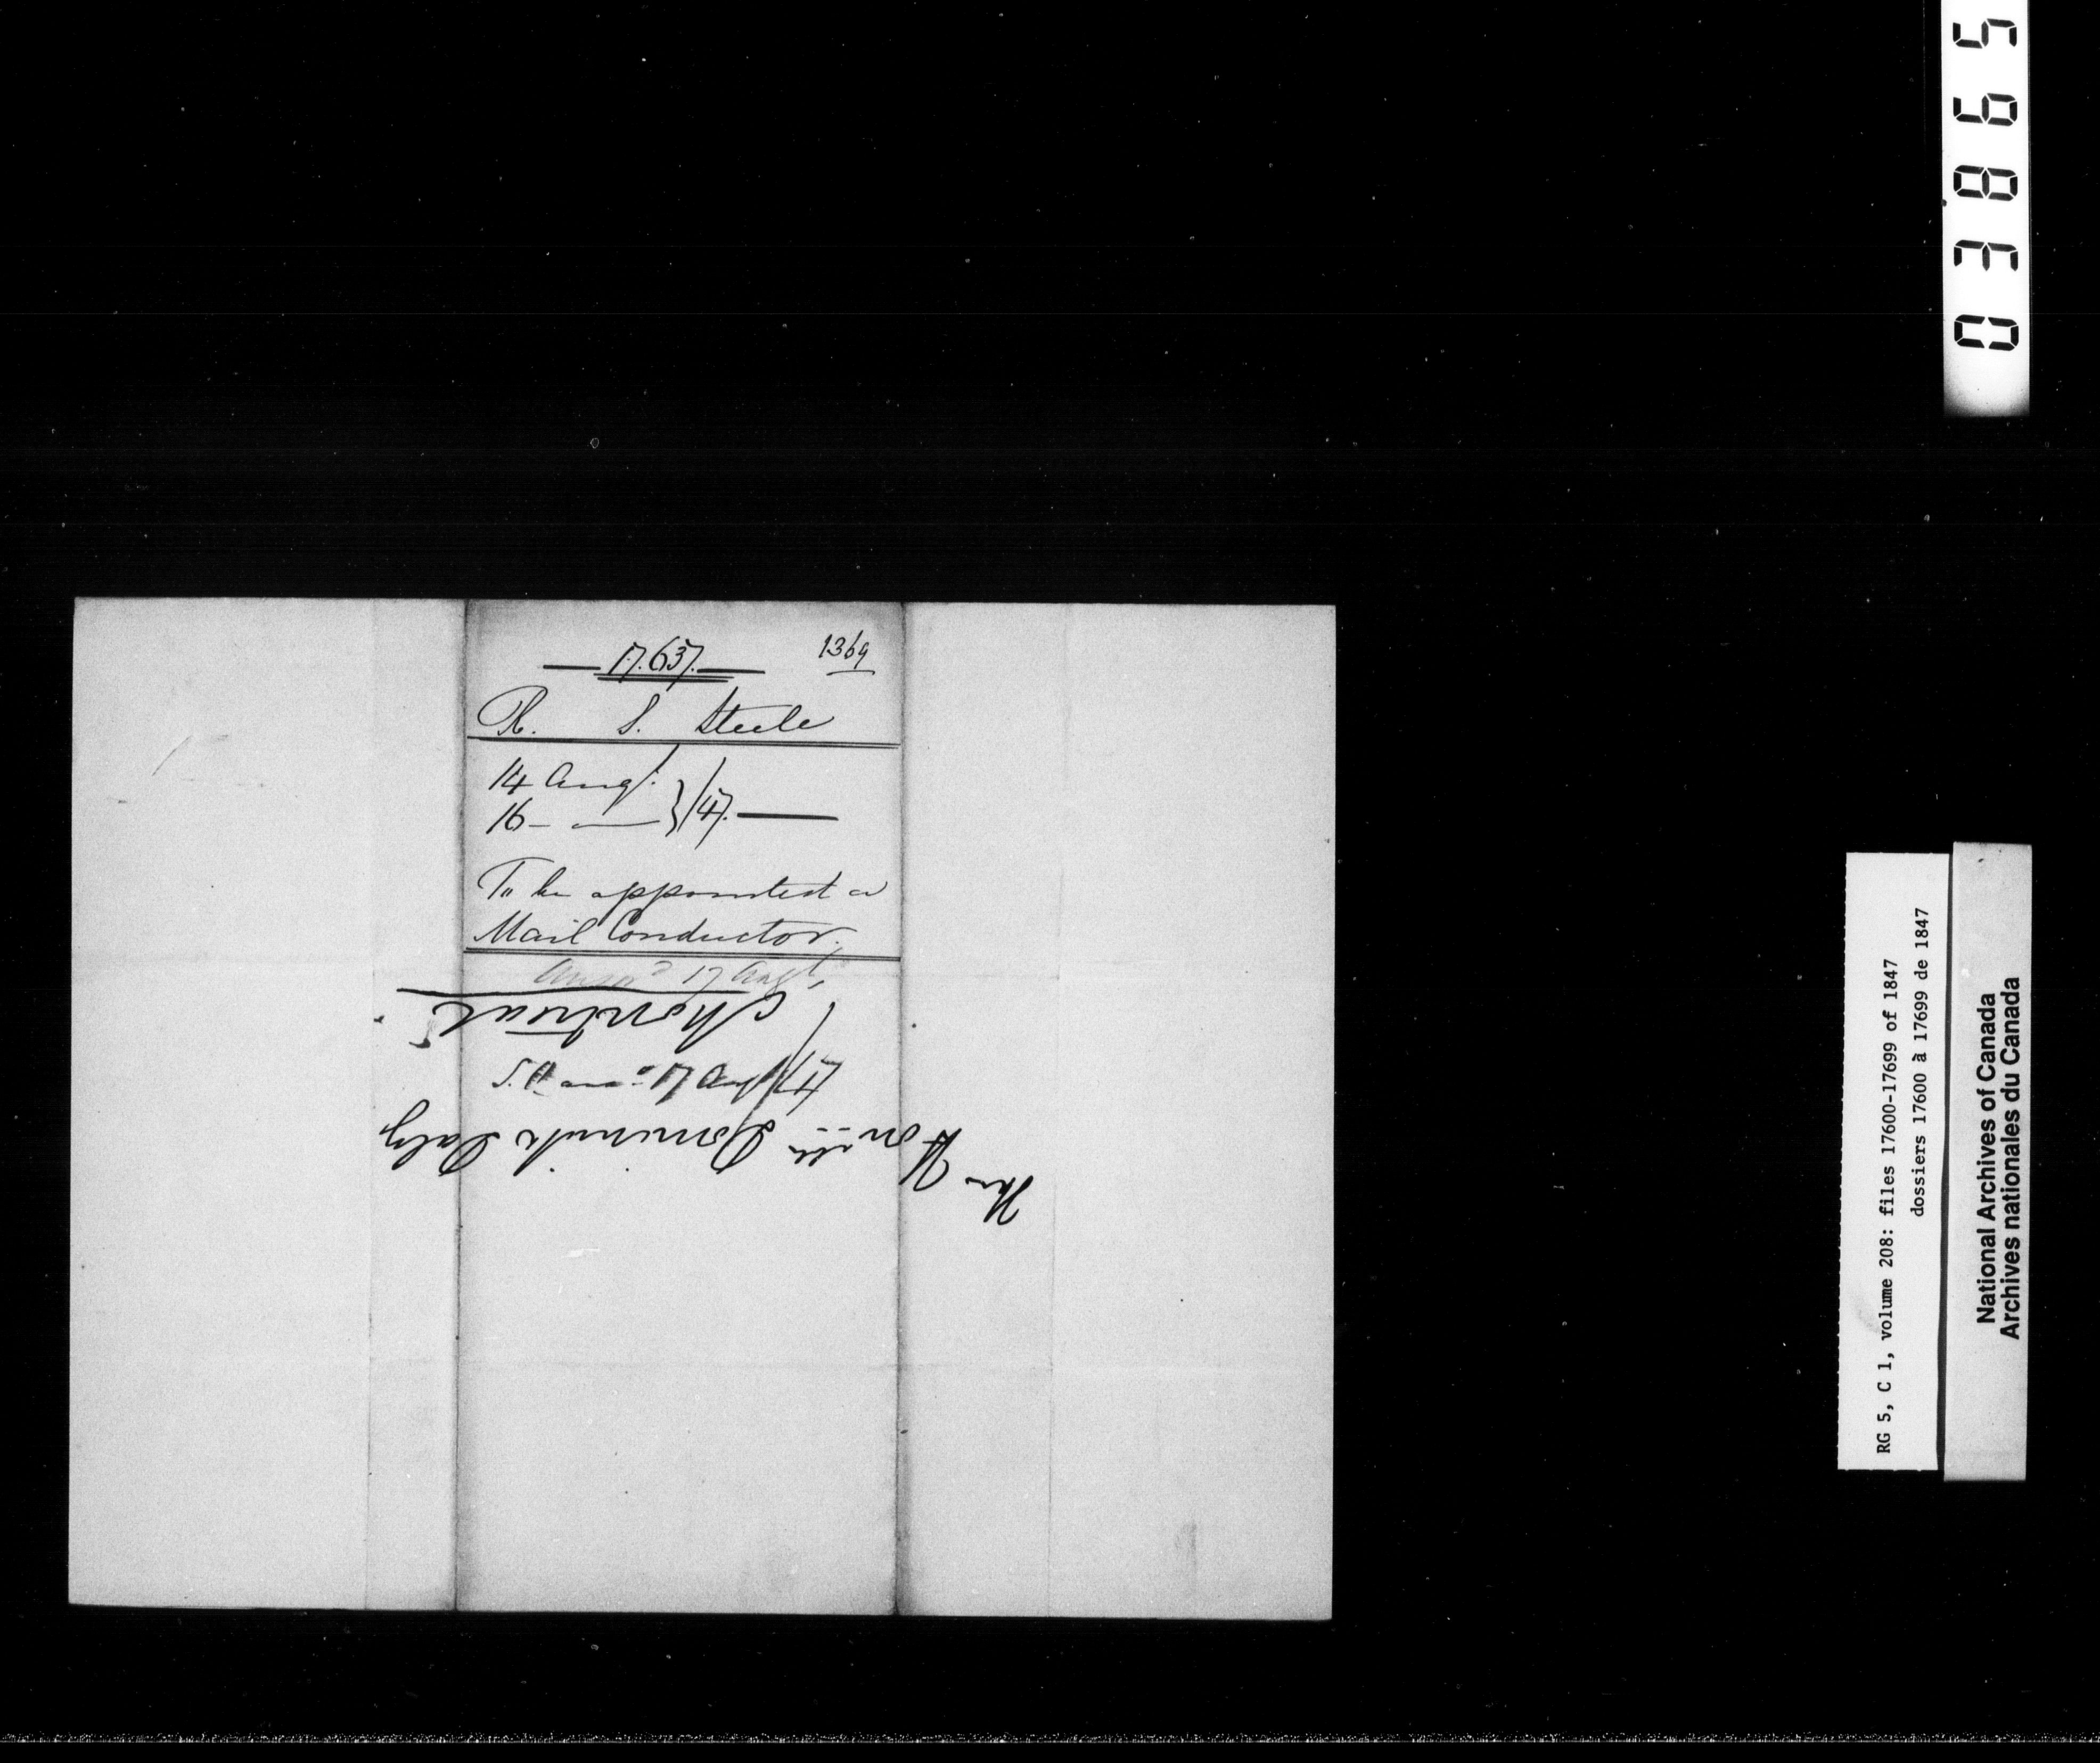 03865
17.637.
1369
R. S. Steele
14 Augt.
16 — — } /47.
To be appointed a
Mail Conductor.
Ansd 17 Augt.
17 Augt /47
The Honble Dominick Daly
Montreal
RG 5, C 1, volume 208: files 17600-17699 of 1847
dossiers 17600 à 17699 de 1847
National Archives of Canada
Archives nationales du Canada